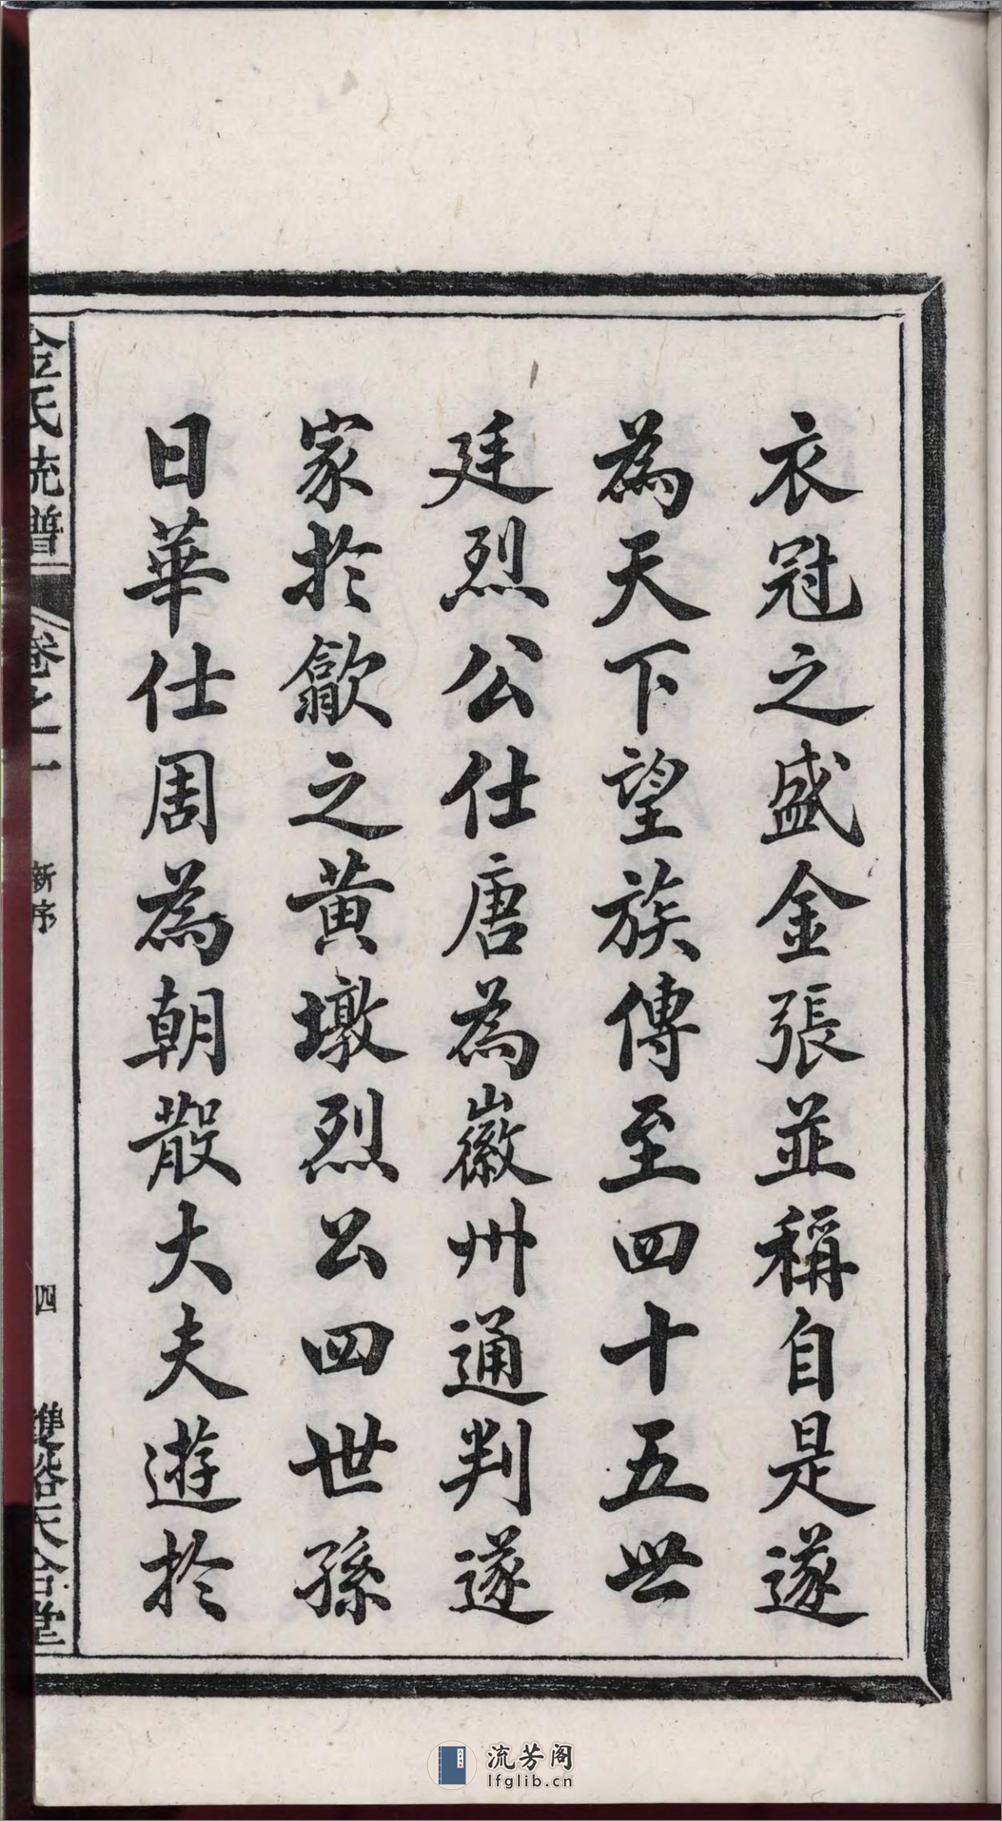 衣冠之盛金張並稱自是遂
為天下望族傳至四十五世
廷烈公仕唐為徽州通判遂
家於歙之黃墩烈公四世孫
日華仕周為朝散大夫遊於
金氏統譜 卷之一 新序 四 雙谿天合堂
流芳阁
lfglib.cn